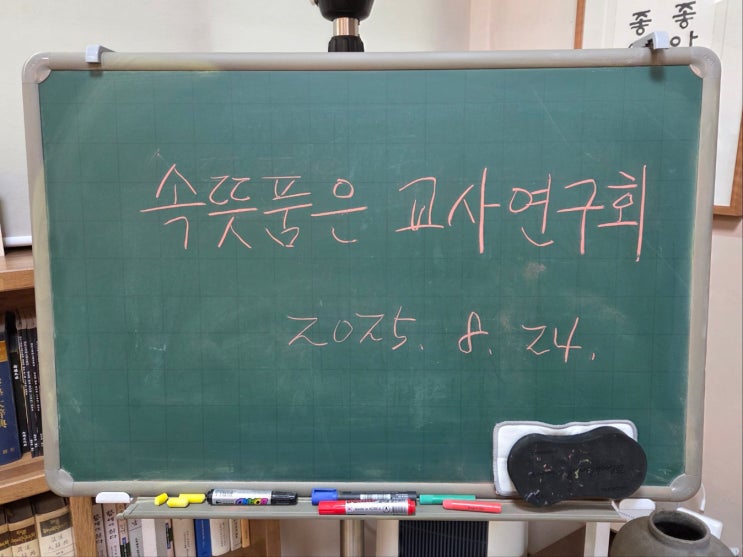 속뜻품은 교사연구회
2025. 8. 24.
좋 좋